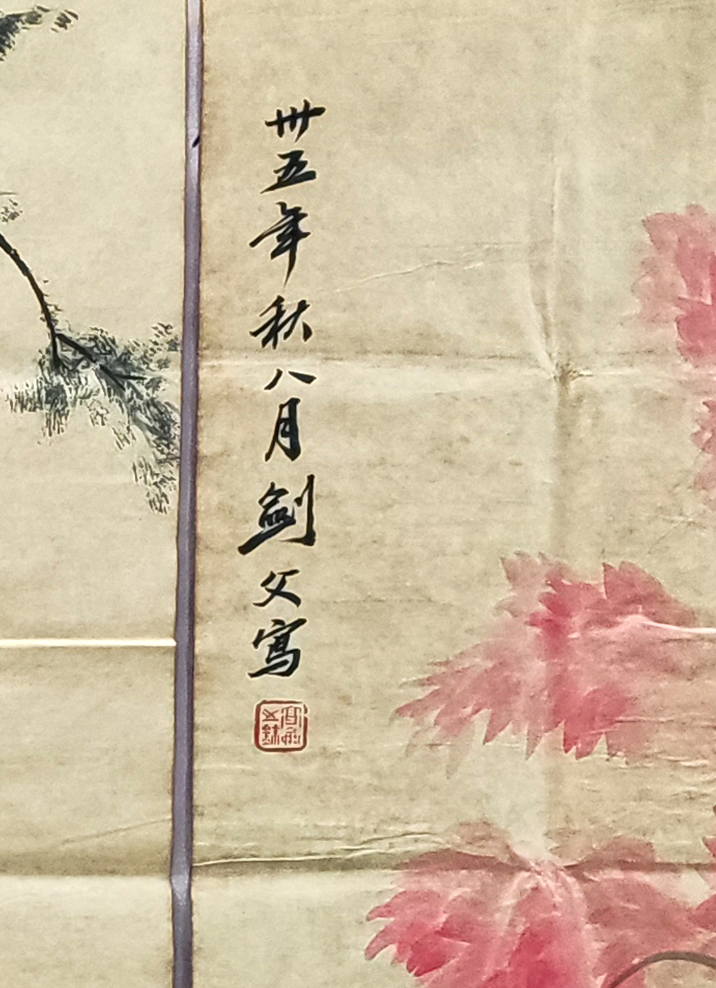 卅五年秋八月劍父寫